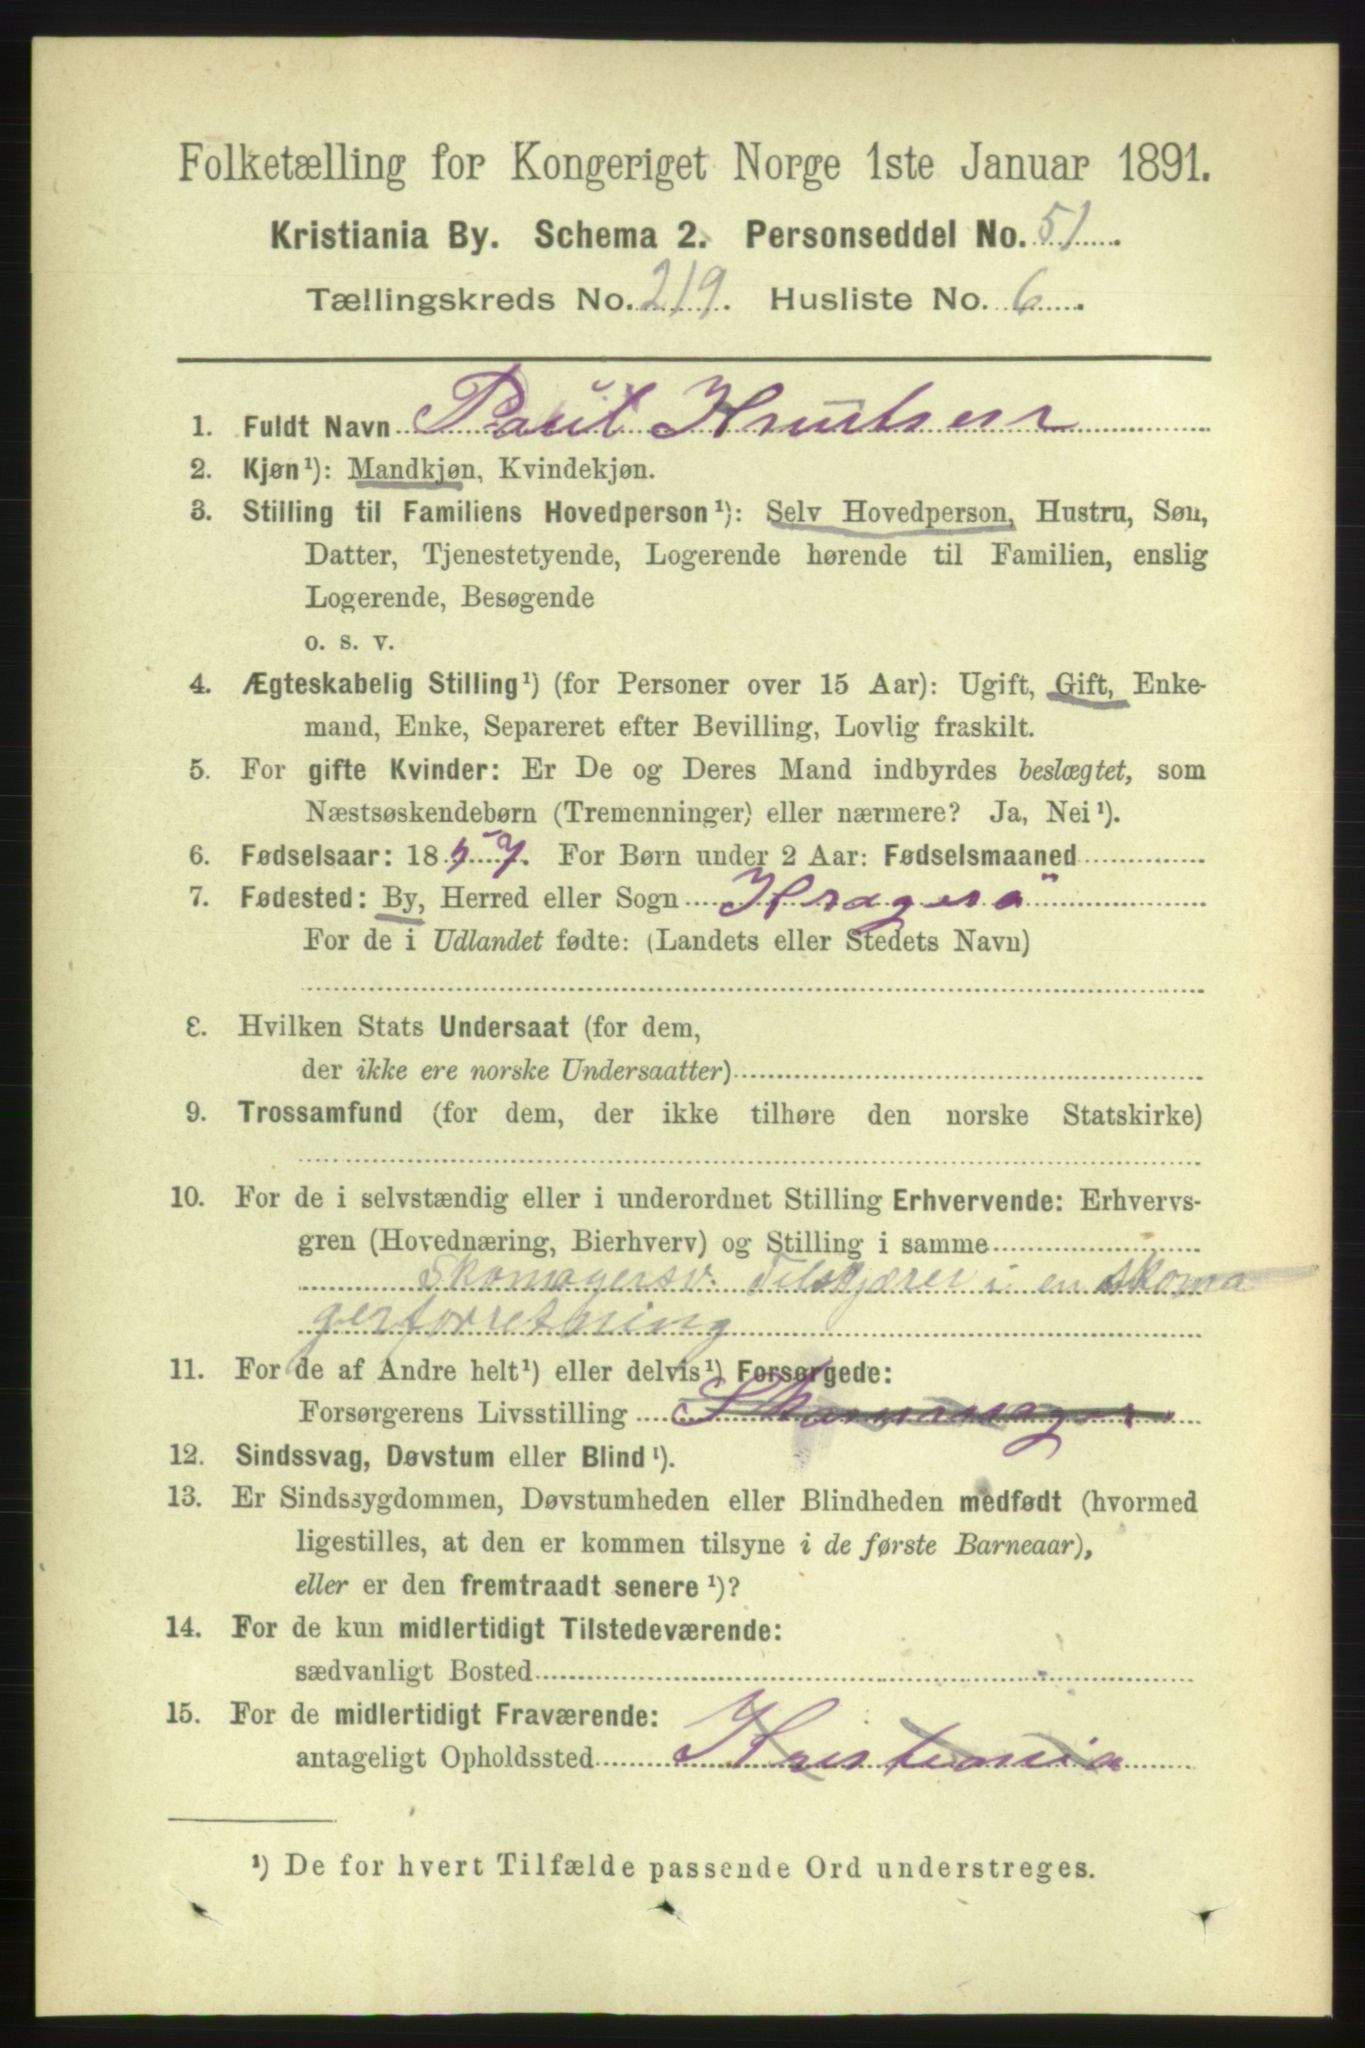 Folketælling for Kongeriget Norge 1ste Januar 1891.
Kristiania By. Schema 2. Personseddel No. 51.
Tællingskreds No. 219. Husliste No. 6.
1. Fuldt Navn Paul Knutsen
2. Kjøn¹): Mandkjøn, Kvindekjøn.
3. Stilling til Familiens Hovedperson¹): Selv Hovedperson, Hustru, Søn,
Datter, Tjenestetyende, Logerende hørende til Familien, enslig
Logerende, Besøgende
o. s. v.
4. Ægteskabelig Stilling¹) (for Personer over 15 Aar): Ugift, Gift, Enke-
mand, Enke, Separeret efter Bevilling, Lovlig fraskilt.
5. For gifte Kvinder: Er De og Deres Mand indbyrdes beslægtet, som
Næstsøskendebørn (Tremenninger) eller nærmere? Ja, Nei¹).
6. Fødselsaar: 1857. For Børn under 2 Aar: Fødselsmaaned
7. Fødested: By, Herred eller Sogn Kragerö
For de i Udlandet fødte: (Landets eller Stedets Navn)
8. Hvilken Stats Undersaat (for dem,
der ikke ere norske Undersaatter)
9. Trossamfund (for dem, der ikke tilhøre den norske Statskirke)
10. For de i selvstændig eller i underordnet Stilling Erhvervende: Erhvervs-
gren (Hovednæring, Bierhverv) og Stilling i samme
Skomagersv. Tilskjærer i en skoma
gerforretning
11. For de af Andre helt¹) eller delvis¹) Forsørgede:
Forsørgerens Livsstilling
12. Sindssvag, Døvstum eller Blind¹).
13. Er Sindssygdommen, Døvstumheden eller Blindheden medfødt (hvormed
ligestilles, at den er kommen tilsyne i de første Barneaar),
eller er den fremtraadt senere¹)?
14. For de kun midlertidigt Tilstedeværende:
sædvanligt Bosted
15. For de midlertidigt Fraværende:
antageligt Opholdssted Kristiania
¹) De for hvert Tilfælde passende Ord understreges.